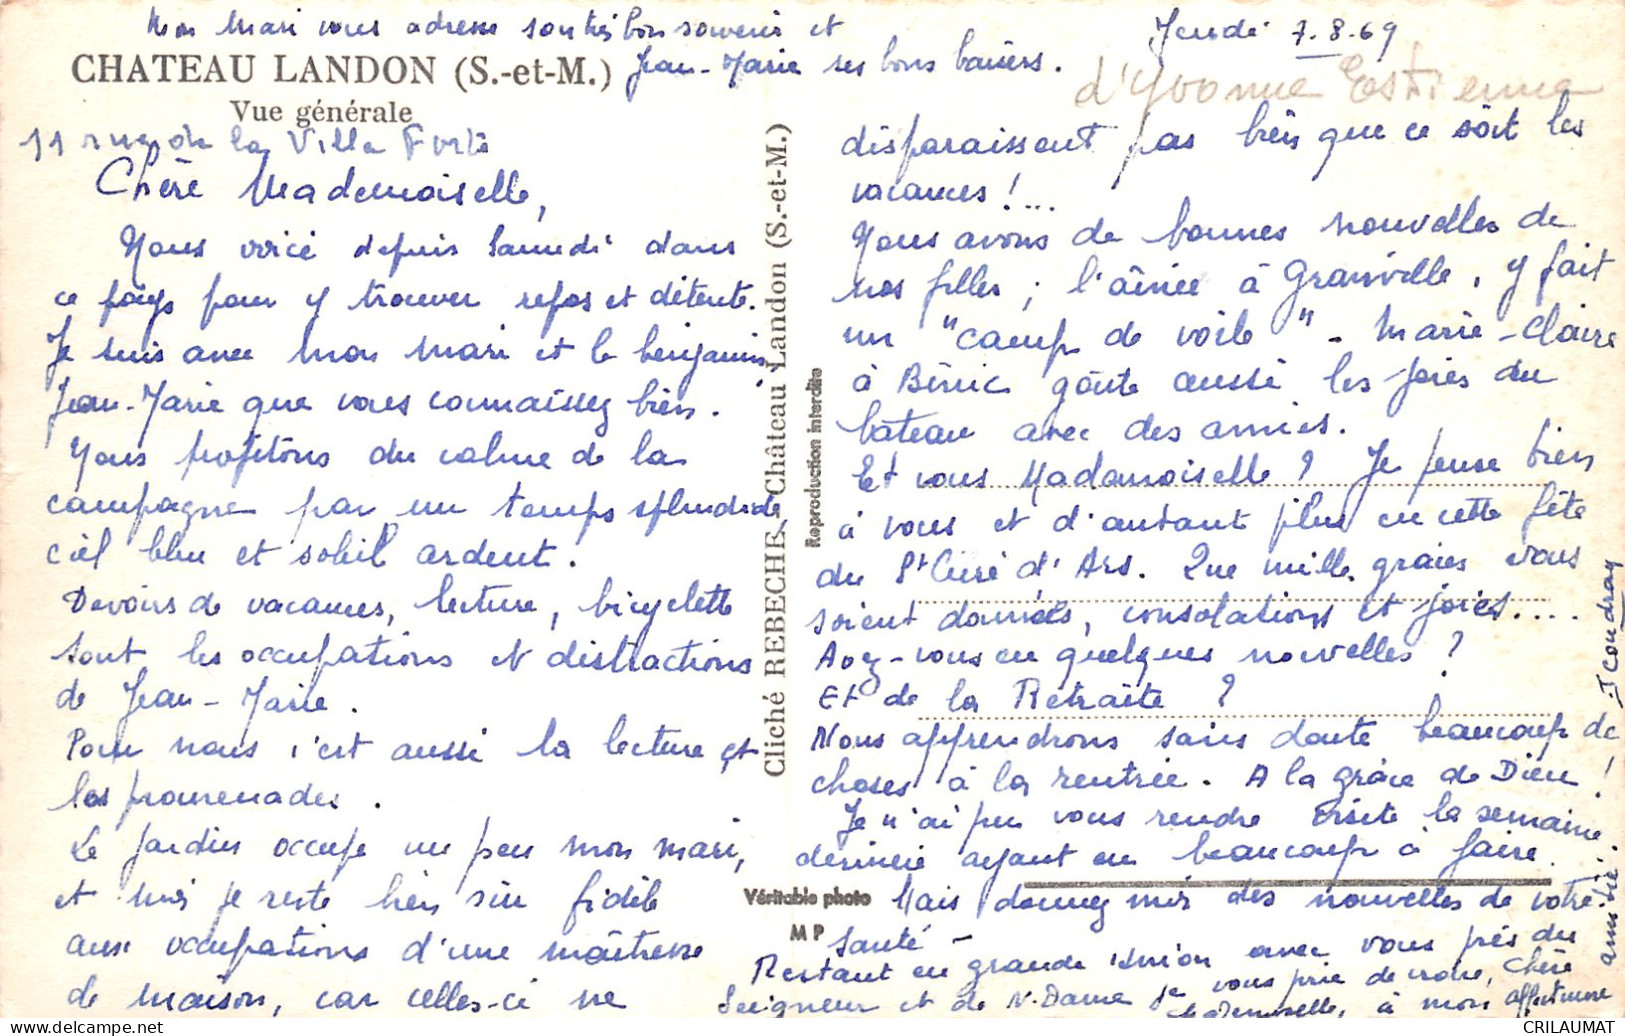 Mon Mari vous adresse son très bon souvenir et
Jean-Marie ses bons baisers.
CHATEAU LANDON (S.-et-M.)
Vue générale
11 rue de la Ville Forte
Chère Mademoiselle,
Nous voici depuis Samedi dans
ce pays pour y trouver repos et détente.
Je suis avec mon mari et le benjamin
Jean-Marie que vous connaissez bien.
Nous profitons du calme de la
campagne par un temps splendide,
ciel bleu et soleil ardent.
Devoirs de vacances, lecture, bicyclette
sont les occupations et distractions
de Jean-Marie.
Pour nous c'est aussi la lecture et
les promenades.
Le jardin occupe un peu mon mari,
et moi je reste bien sûr fidèle
aux occupations d'une maîtresse
de maison, car celles-ci ne
Cliché REBECHE, Château Landon (S.-et-M.)
Reproduction interdite
Véritable photo
M P
Jeudi 7.8.69
d'Yvonne Estienne
disparaissent pas bien que ce soit les
vacances !...
Nous avons de bonnes nouvelles de
nos filles ; l'aînée à Granville, y fait
un "camp de voile" - Marie-Claire
à Bénic goûte aussi les joies du
bateau avec des amies.
Et vous Mademoiselle ? Je pense bien
à vous et d'autant plus en cette fête
du St Curé d'Ars. Que mille grâces vous
soient données, consolations et joies....
Avez-vous eu quelques nouvelles ?
Et de la Retraite ?
Nous apprendrons sans doute beaucoup de
choses à la rentrée. A la grâce de Dieu !
Je n'ai pu vous rendre visite la semaine
dernière ayant eu beaucoup à faire.
Mais donnez moi des nouvelles de votre
santé -
Restant en grande union avec vous près du
Seigneur et de N-Dame je vous prie de croire, Chère
Mademoiselle, à mon affectueuse
amitié.
J Coudray
CRILAUMAT